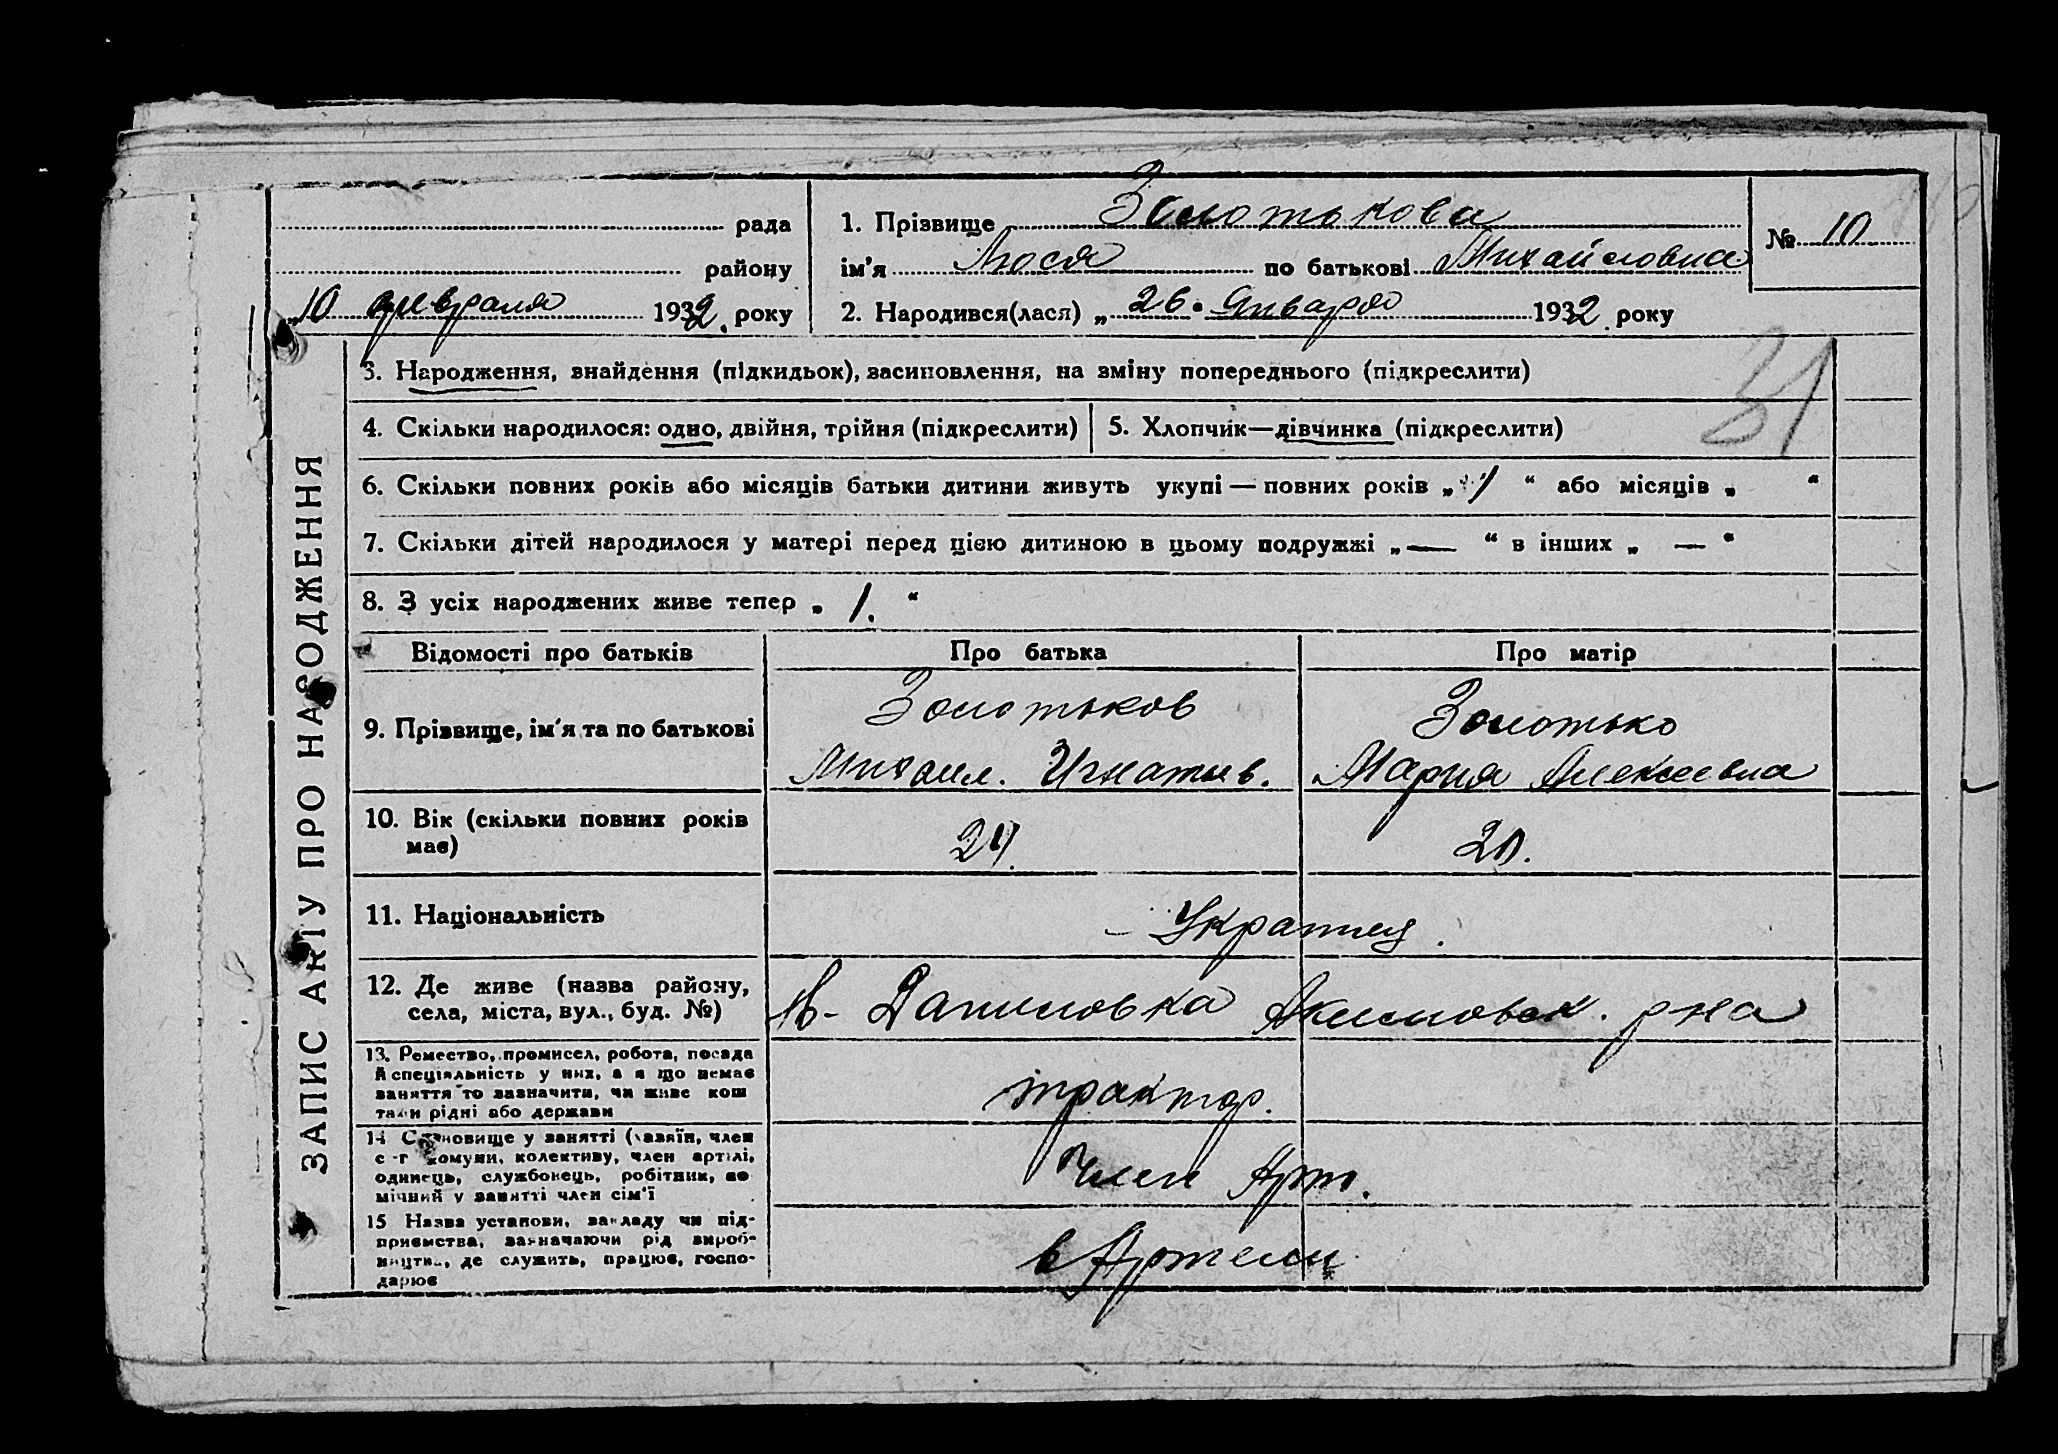 рада
району
„10 февраля 1932 року
1. Прізвище Золотькова
ім'я Люся по батькові Михайловна
2. Народився(лася) „26“ Января 1932 року
№ 10
31
ЗАПИС АКТУ ПРО НАРОДЖЕННЯ
3. Народження, знайдення (підкидьок), засиновлення, на зміну попереднього (підкреслити)
4. Скільки народилося: одно, двійня, трійня (підкреслити)
5. Хлопчик—дівчинка (підкреслити)
6. Скільки повних років або місяців батьки дитини живуть укупі — повних років „ 1 “ або місяців „ “
7. Скільки дітей народилося у матері перед цією дитиною в цьому подружжі „ — “ в інших „ — “
8. З усіх народжених живе тепер „ 1. “
Відомості про батьків Про батька Про матір
9. Прізвище, ім'я та по батькові
Золотьков
Михаил. Игнатьев.
Золотько
Мария Алексеевна
10. Вік (скільки повних років
має)
24. 20.
11. Національність
Украинец.
12. Де живе (назва району,
села, міста, вул., буд. №)
Н- Даниловка Акимовск. р-на
13. Ремество, промисел, робота, посада
й спеціяльність у них, а я що немає
заняття то зазначити, чи живе кош
тами рідні або держави
трактор.
14 Становище у занятті (хазяїн, член
с -г комуни, колективу, член артілі,
одинець, службовець, робітник, по
мічний у занятті член сім'ї
Член Арт.
15 Назва установи, закладу чи під-
приємства, зазначаючи рід вироб-
ництва, де служить, працює, госпо-
дарює
в Артели